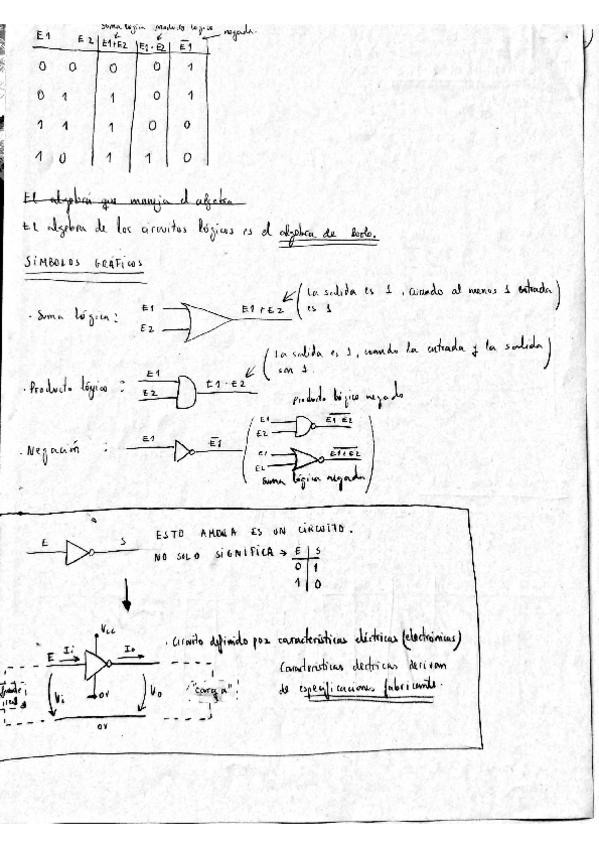 suma lógica producto lógico negada.
E1 E2 E1+E2 E1·E2 E1̅
0 0 0 0 1
0 1 1 0 1
1 1 1 0 0
1 0 1 1 0
El algebra que maneja el algebra
El algebra de los circuitos lógicos es el algebra de Boole.
SÍMBOLOS GRÁFICOS
· Suma lógica: E1 E2 E1+E2 (La salida es 1, cuando al menos 1 entrada es 1)
· Producto lógico: E1 E2 E1·E2 (La salida es 1, cuando la entrada y la salida son 1.)
producto lógico negado
E1 E2 E̅1̅·̅E̅2̅
· Negación: E1 E1̅
E1 E2 E̅1̅+̅E̅2̅
suma lógica negada
E S ESTO AHORA ES UN CIRCUITO.
NO SOLO SIGNIFICA → E S
0 1
1 0
Vcc
E Ii Io
· Circuito definido por características eléctricas (electrónicas)
Características electricas derivan
de especificaciones fabricante.
Vi 0V Vo "carga"
0V